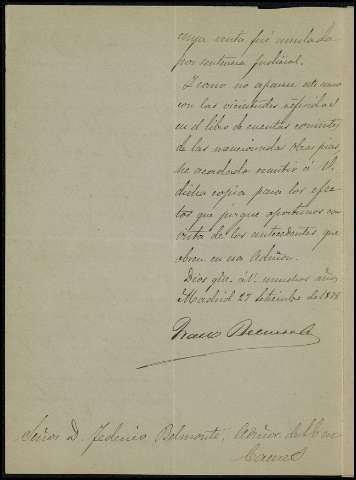 cuya venta fué anulada
por sentencia judicial.
Y como no aparece este censo
con las vicisitudes referidas
en el libro de cuentas corrientes
de las mencionadas obras pias,
he acordado remitir á V.
dicha copia para los efec
tos que juzgue oportunos en
vista de los antecedentes que
obren en esa Admon.
Dios gue. á V. muchos años
Madrid 27 Setiembre de 18
Señor D. Federico Belmonte, Admor de
Cuenca